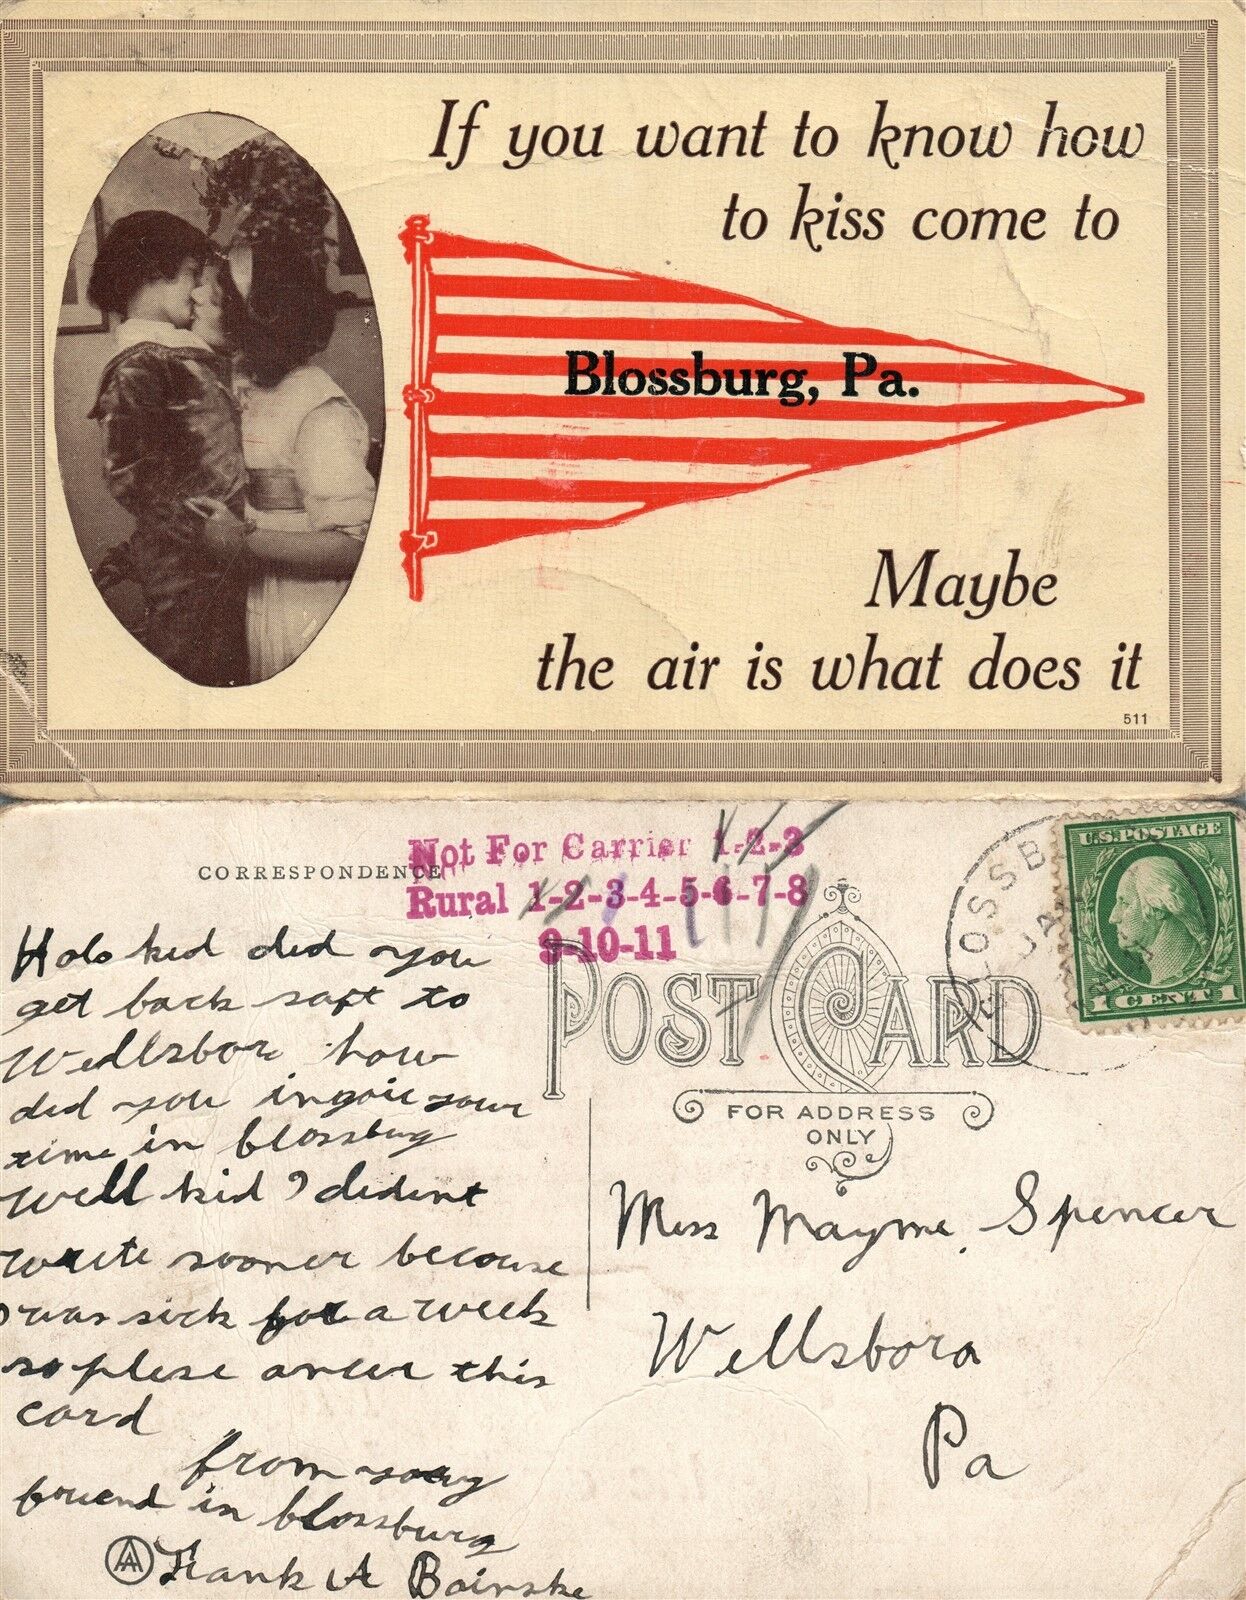 If you want to know how
to kiss come to
Blossburg, Pa.
Maybe
the air is what does it
511
Not For Carrier 1-2-3
CORRESPONDENCE
Rural 1-2-3-4-5-6-7-8
9-10-11
POST CARD
FOR ADDRESS
ONLY
BLOSSB
JAN
U.S. POSTAGE
1 CENT 1
Holo kid did you
get back saft to
Wellsboro how
did you ingoie your
time in blossburg
Well kid I dident
write sooner becouse
I was sick for a week
so plese anser this
card
from your
friend in blossburg
Frank A
Miss Mayme Spencer
Wellsboro
Pa